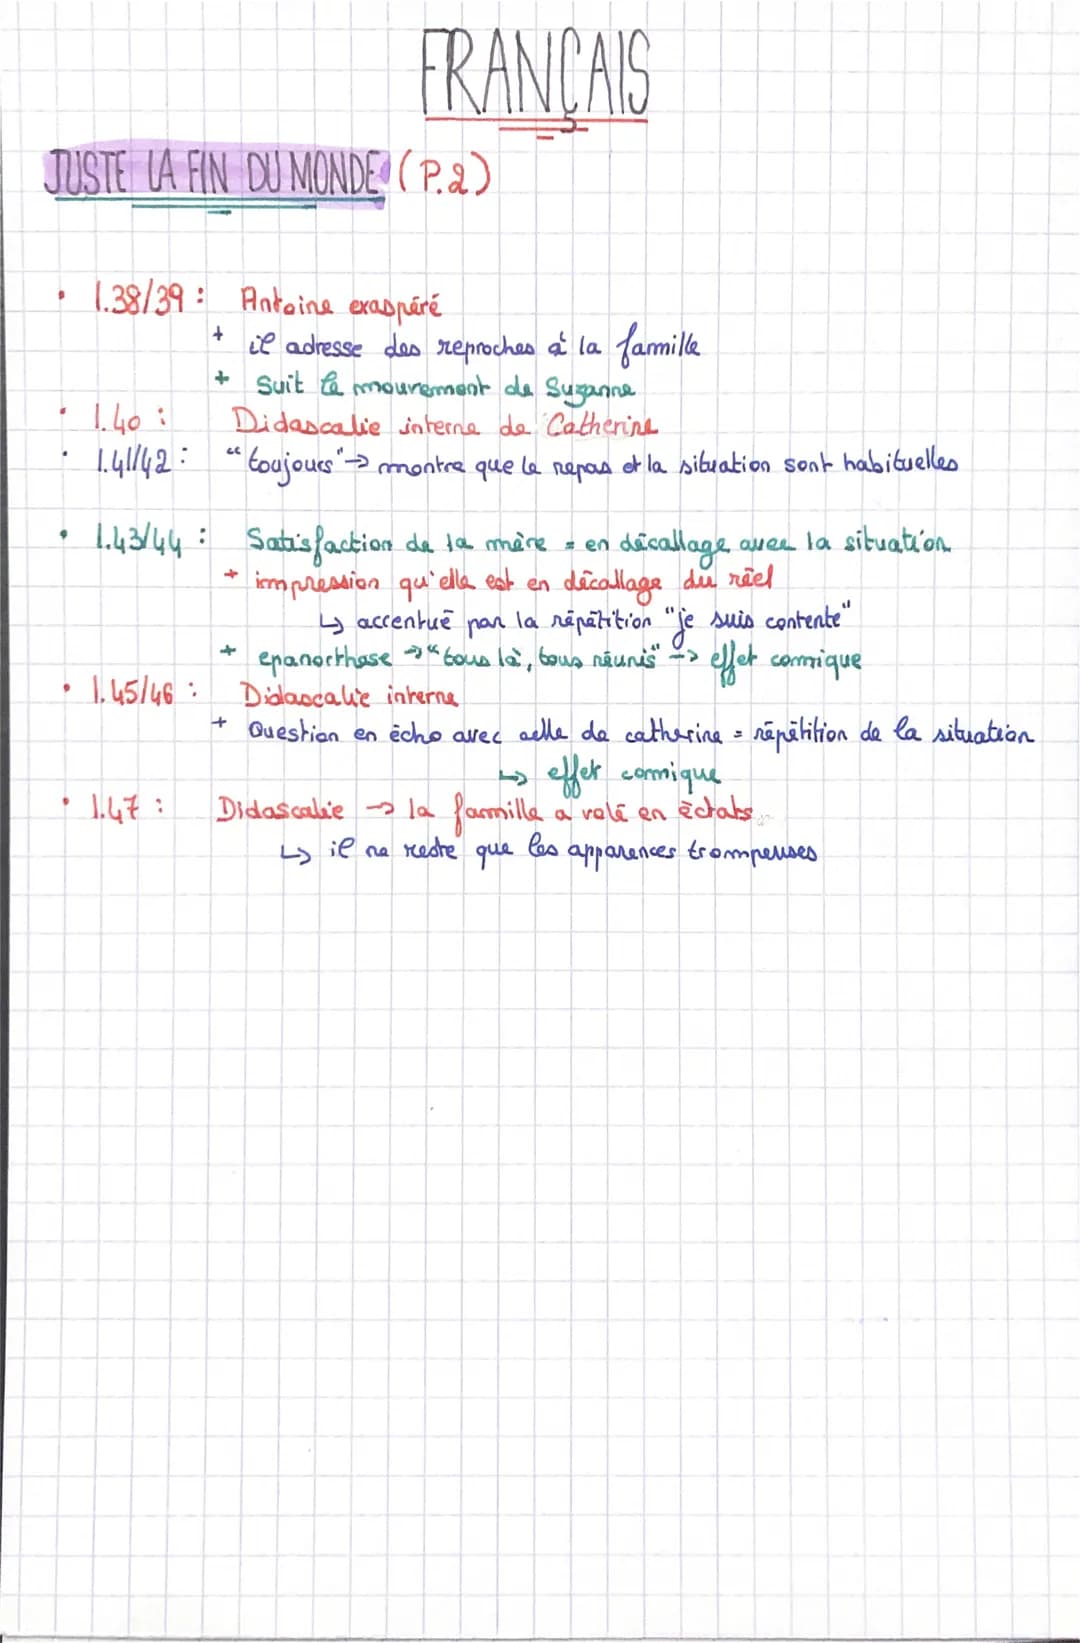 FRANÇAIS
JUSTE LA FIN DU MONDE (P.2)
• l.38/39 : Antoine exaspéré
+ il adresse des reproches à la famille
+ Suit le mouvement de Suzanne
• l.40 : Didascalie interne de Catherine
• l.41/42 : "toujours" → montre que le repas et la situation sont habituelles
• l.43/44 : Satisfaction de la mère = en décallage avec la situation
+ impression qu'elle est en décallage du réel
↳ accentué par la répétition "je suis contente"
+ epanorthase → "tous là, tous réunis" -> effet comique
• l.45/46 : Didascalie interne
+ Question en écho avec celle de catherine = répétition de la situation
↳ effet comique
• l.47 : Didascalie → la famille a volé en éclats
↳ il ne reste que les apparences trompeuses